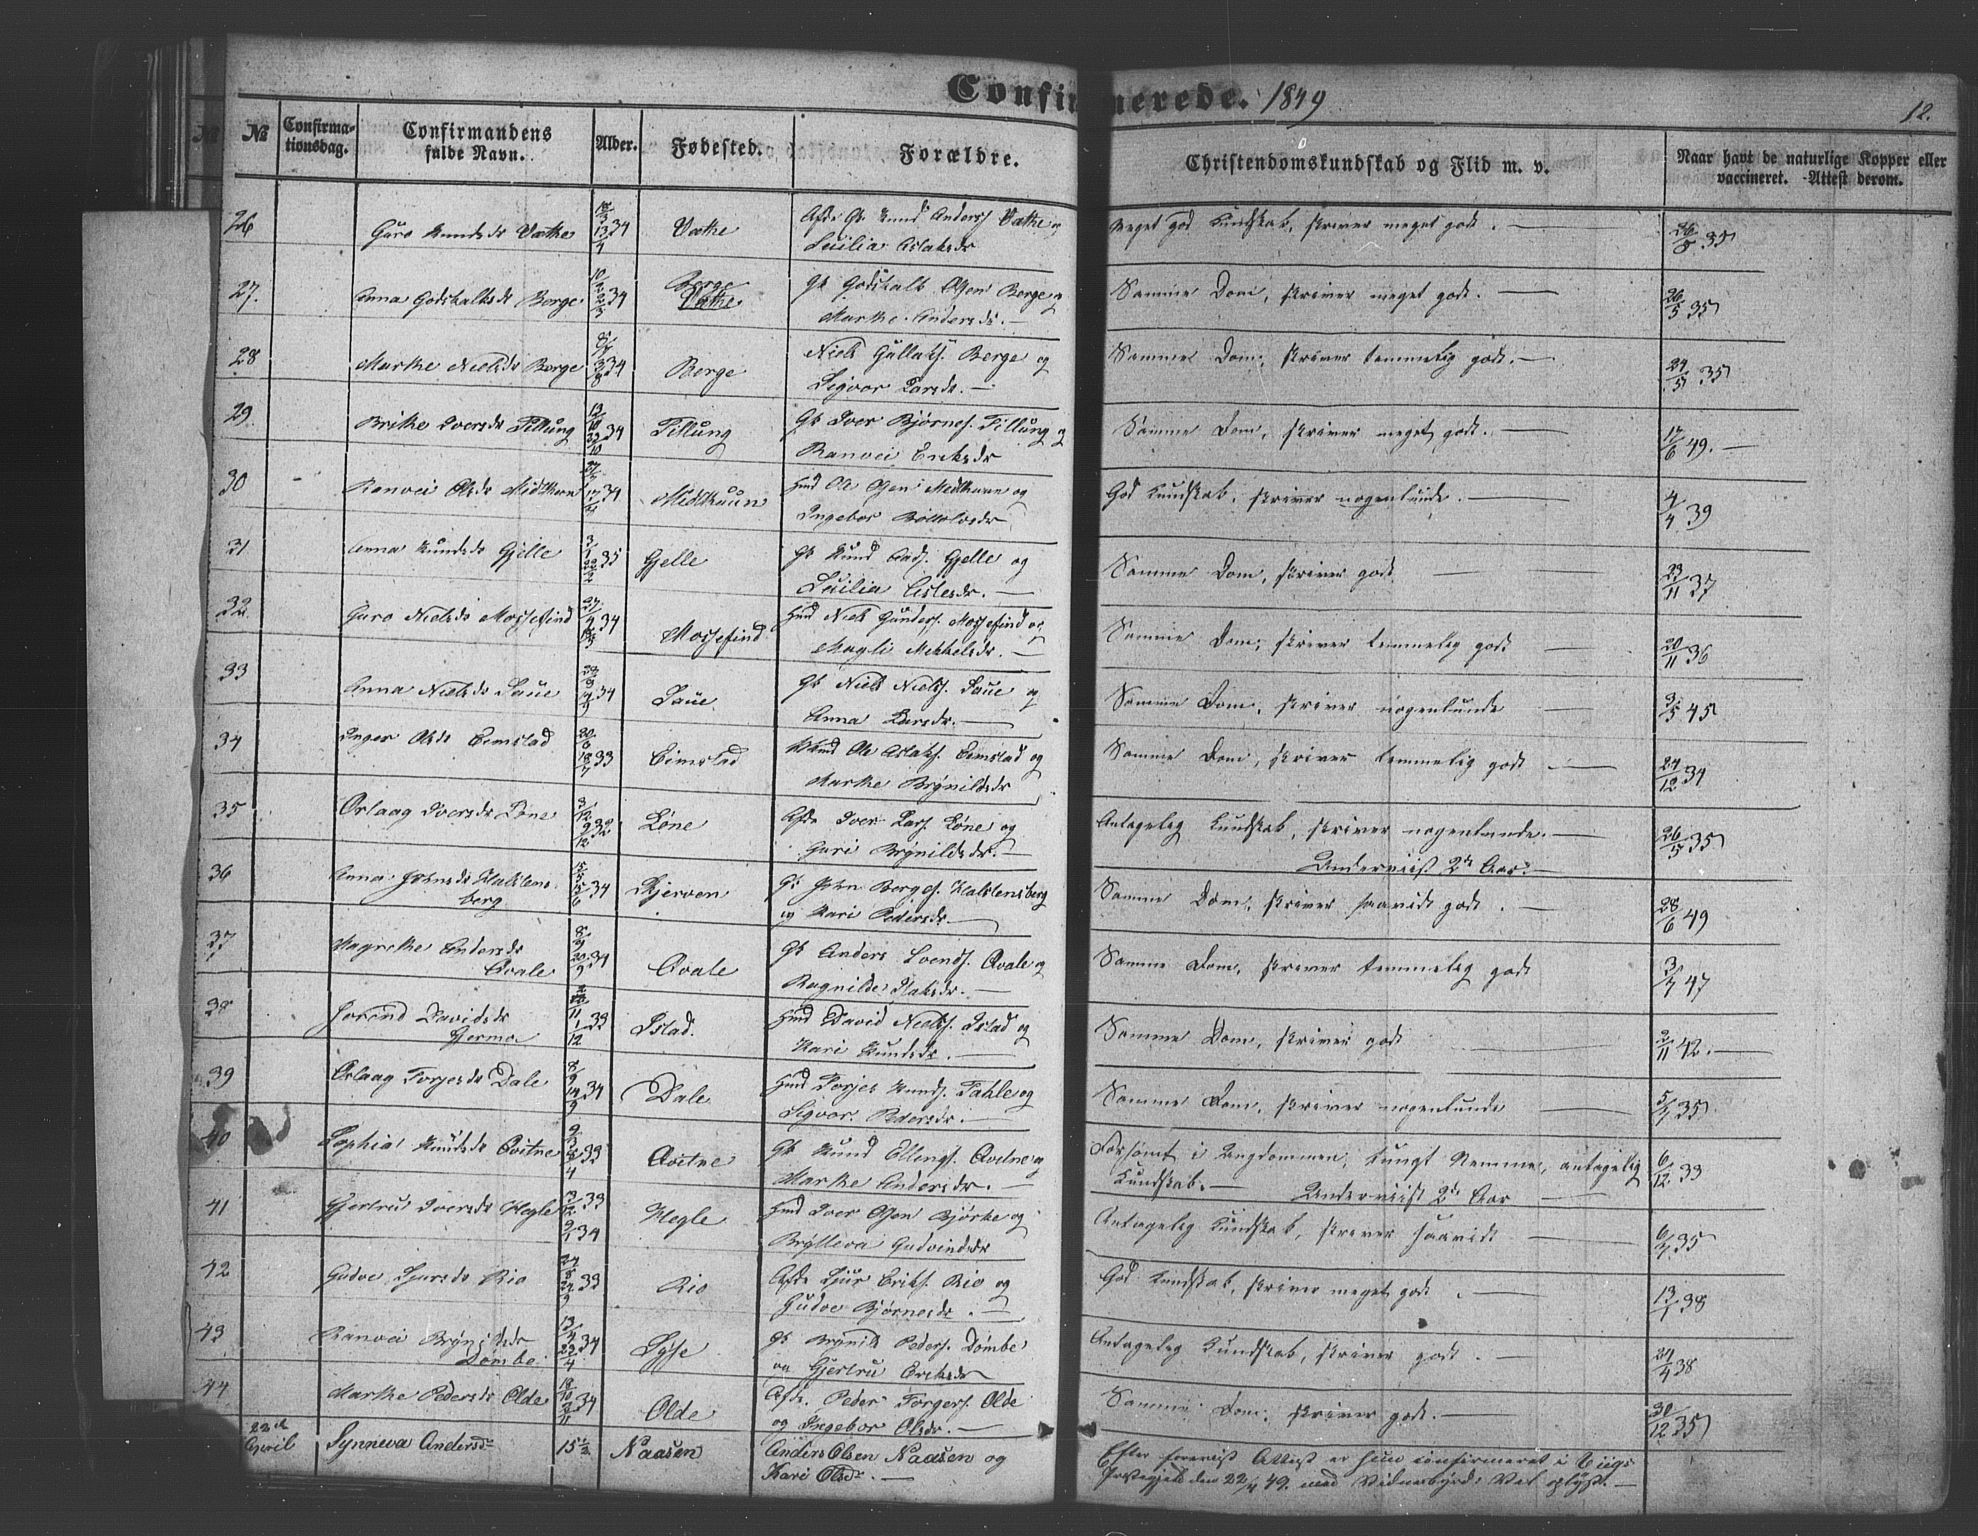 Confirmerede. 1849
12.
№ Confirmationsdag. Confirmandens fulde Navn. Alder. Fødested. Forældre. Christendomskundskab og Flid m. v. Naar havt de naturlige Kopper eller vaccineret. Attest derom.
26 Guro Knudsdr Væthe 34 Væthe Afde Knud Anders. Væthe og
Meget god Kundskab, skriver meget godt. 26/8 35
27. Anna Godskalksdr Berge 34 Berge Godskalk Olsen Berge og
Marthe Andersdr.
Samme Dom, skriver meget godt. 26/5 35
28 Marthe Nielsdr Berge 34 Berge Niels Gullaks. Berge og
Sigvor Larsdr.
Samme Dom, skriver temmelig godt. 24/5 35
29. Brithe Iversdr Tillung 34 Tillung Iver Bjørnes. Tillung og
Ranvei Eriksdr
Samme Dom, skriver meget godt. 17/6 49.
30 Ranvei Olsdr Midthun 34 Midthuun Hmd Ole Olsen Midthuun og
Ingebor Bottolvsdr
God Kundskab, skriver nogenlunde. 4/4 39
31 Anna Knudsdr Gjelle 3/1 35 Gjelle Knud Gjelle og
Samme Dom, skriver godt 23/11 37
32 Guro Nielsdr Mossefind 34 Mossefind Hmd Niels Gunders. Mossefind og
Magli Mikkelsdr.
Samme Dom, skriver temmelig godt 20/11 36
33 Anna Nielsdr Saue 34 Saue Niels Niels. Saue og
Anna Larsdr.
Samme Dom, skriver nogenlunde 3/5 45
34 Inger Olsdr Eimstad 33 Eimstad Ole Aslaks. Eimstad og
Marthe Brynildsdr
Samme Dom, skriver temmelig godt 24/12 34
35 Orlaag Iversdr Løne 32 Løne Afde Iver Lars. Løne og
Guri Brynildsdr.
Antagelig Kundskab, skriver nogenlunde. 26/5 35
Underviist 2de Aar.
36 Anna Johnsdr Halstens-
berg 34 Skjerven John Berges. Halstensberg
og Kari Pedersdr.
Samme Dom, skriver saavidt godt. 28/6 49
37 Magrethe Andersdr
Qvale 34 Qvale Anders Svends. Qvale og
Ragnilde
Samme Dom, skriver temmelig godt 3/7 47
38 Jorend Davidsdr
Gjerme 33 Istad. Hmd David Niels. Istad og
Kari Knudsdr.
Samme Dom, skriver godt 2/11 42.
39 Orlaag Torjersdr Dale 34 Dale Hmd Torjer Knuds. Dahle og
Sigvor Pedersdr.
Samme Dom, skriver nogenlunde 5/7 35.
40 Sophia Knudsdr Qvitne 33 Qvitne Knud Ellings. Qvitne og
Marthe Andersdr.
Forsømt i Ungdommen, tungt Nemme, antagelig
Kundskab. Underviist 2de Aar 6/12 33
41 Gjertru Iversdr Hegle 33 34 Hegle Hmd Iver Olsen Bjørke og
Brytteva Gudvindsdr
Antagelig Kundskab, skriver saavidt 6/7 35
42 Gudve Sjursdr Rio 33 Rio Afde Sjur Eriks. Rio og
Gudve Bjørnesdr.
God Kundskab, skriver meget godt. 13/1 38
43 Ranvei Brynildsdr
Dømbe 34 Lysse Brynild Peders. Dømbe
og Gjertru Eriksdr
Antagelig Kundskab, skriver godt. 24/4 38
44 Marthe Pedersdr Olde 34 Olde Afde. Peder Torgers. Olde
og Ingebor Olsdr.
Samme Dom, skriver godt. 30/12 35
22de
April Synneva Andersdr 15½ Naasen Anders Olsen Naasen og
Kari Olsdr.
Efter foreviist Attest er hun confirmeret i Viigs
Præstegjeld den 22/4 49. med Vidnesbyrd: Vel oplyst.